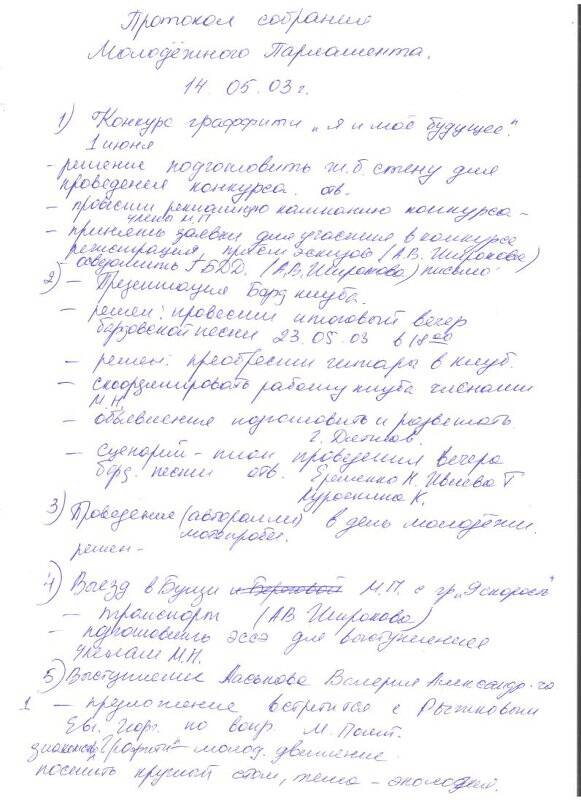 Протокол собрания
Молодёжного Парламента.
14.05.03 г.
1) Конкурс граффити „Я и моё будущее".
1 июня
- решение подготовить ж.б. стену для
проведения конкурса. отв.
- провести рекламную кампанию конкурса -
члены М.П.
- принять заявки для участия в конкурсе
регистрация, приём эскизов (А.В. Широкова)
осведомить ГБДД. (А.В. Широкова) письмо
2) - Презентация Бард клуба.
- решен: провести итоговый вечер
бардовской песни 23.05.03 в 18 00
- решен: преобрести гитара в клуб.
- скоординировать работу клуба членами
М.П.
- объявления подготовить и развешать
г.
- сценарий - план проведения вечера
бард. песни отв. Еременко Н. Т
К.
3) Проведение (авторалли) в день молодёжи.
мотопробег.
решен -
4) Выезд в М.П. с гр.
- транспорт (А.В. Широкова)
- подготовить эссэ для выступления
членам М.П.
5) Выступление Валерия Александр-ча
1 - предложение встретится с Рыжковым
по вопр. М. Полит.
молод. движение.
посетить круглой стол, тема -